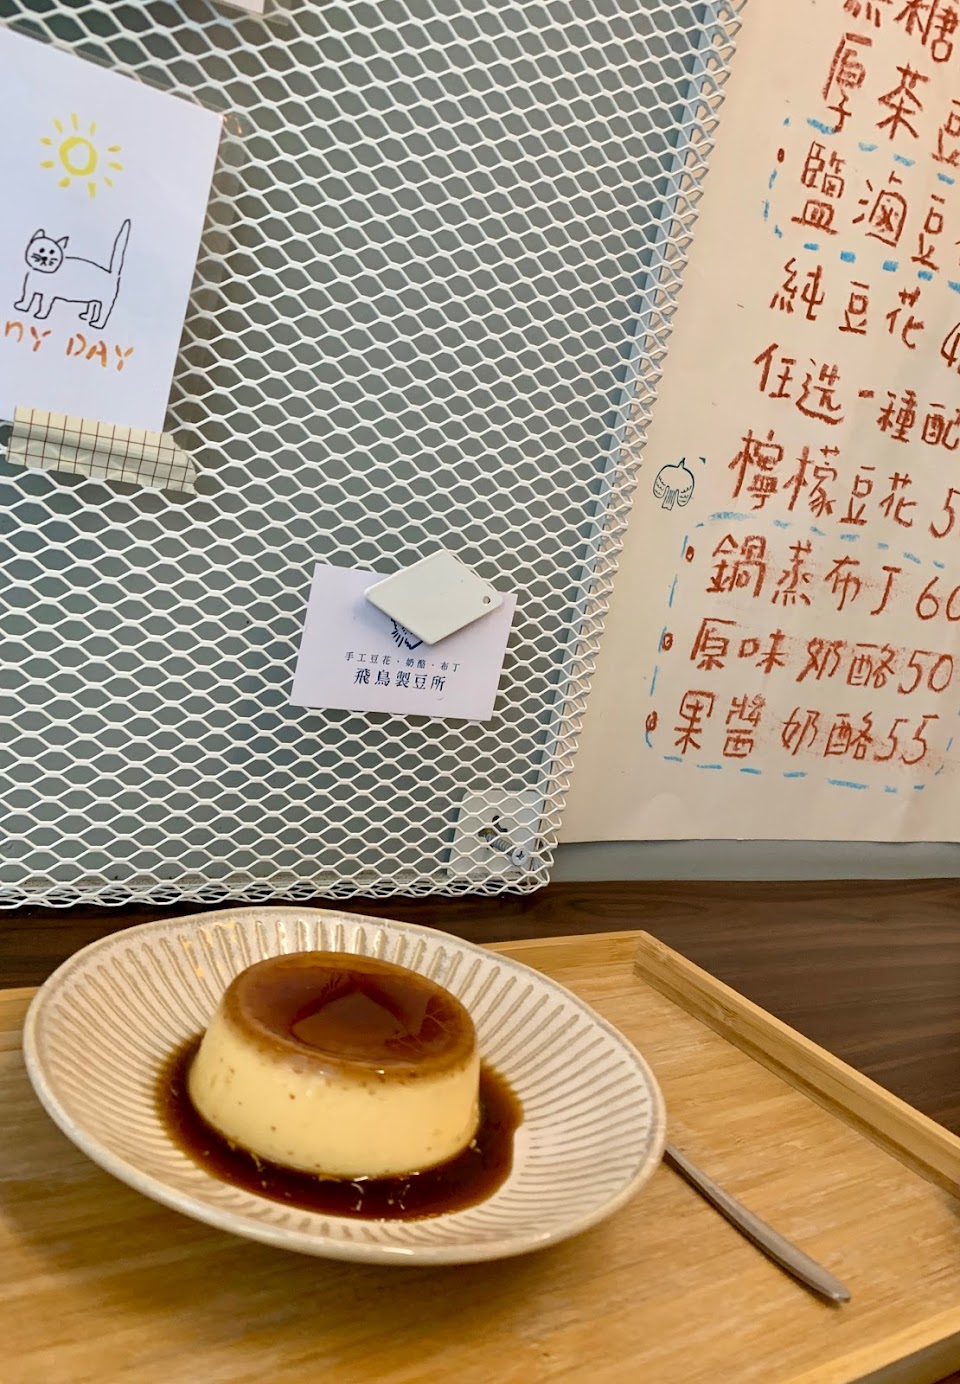 NY DAY
手工豆花·奶酪·布丁
飛鳥製豆所
糖
厚茶豆
鹽滷豆
純豆花 4
任选一種配
檸檬豆花 5
鍋蒸布丁 60
原味奶酪 50
果醬奶酪 55